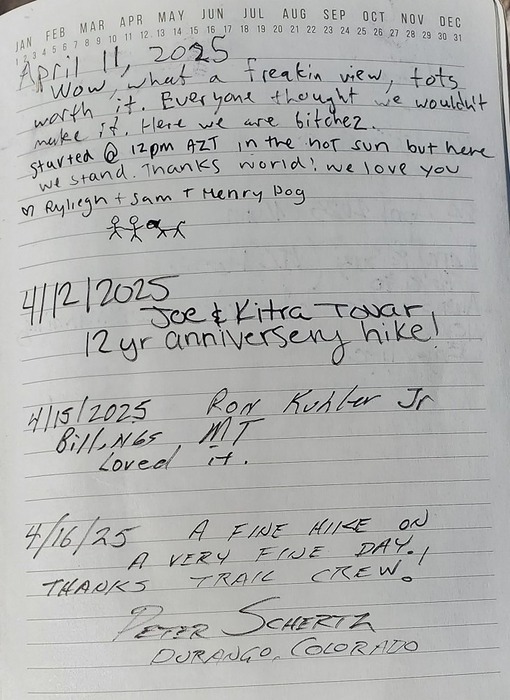 JAN FEB MAR APR MAY JUN JUL AUG SEP OCT NOV DEC
1 2 3 4 5 6 7 8 9 10 11 12 13 14 15 16 17 18 19 20 21 22 23 24 25 26 27 28 29 30 31
April 11, 2025
Wow, what a freakin view, tots
worth it. Everyone thought we wouldn't
make it. Here we are bitchez.
Started @ 12pm AZT in the hot sun but here
we stand. Thanks world! we love you
♡ Ryliegh + Sam + Henry Dog
4/12/2025
Joe & Kitra Tovar
12 yr anniversery hike!
4/15/2025 Ron Kuhler Jr
Billings, MT
Loved it.
4/16/25 A FINE HIKE ON
A VERY FINE DAY.!
THANKS TRAIL CREW!
PETER SCHERTZ
DURANGO, COLORADO